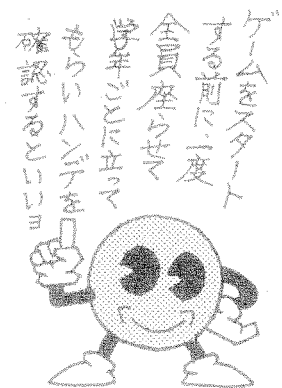 ゲームをスタート
する前に、一度
全員座らせて
学年ごとに立って
もらいハンデを
確認するといいヨ